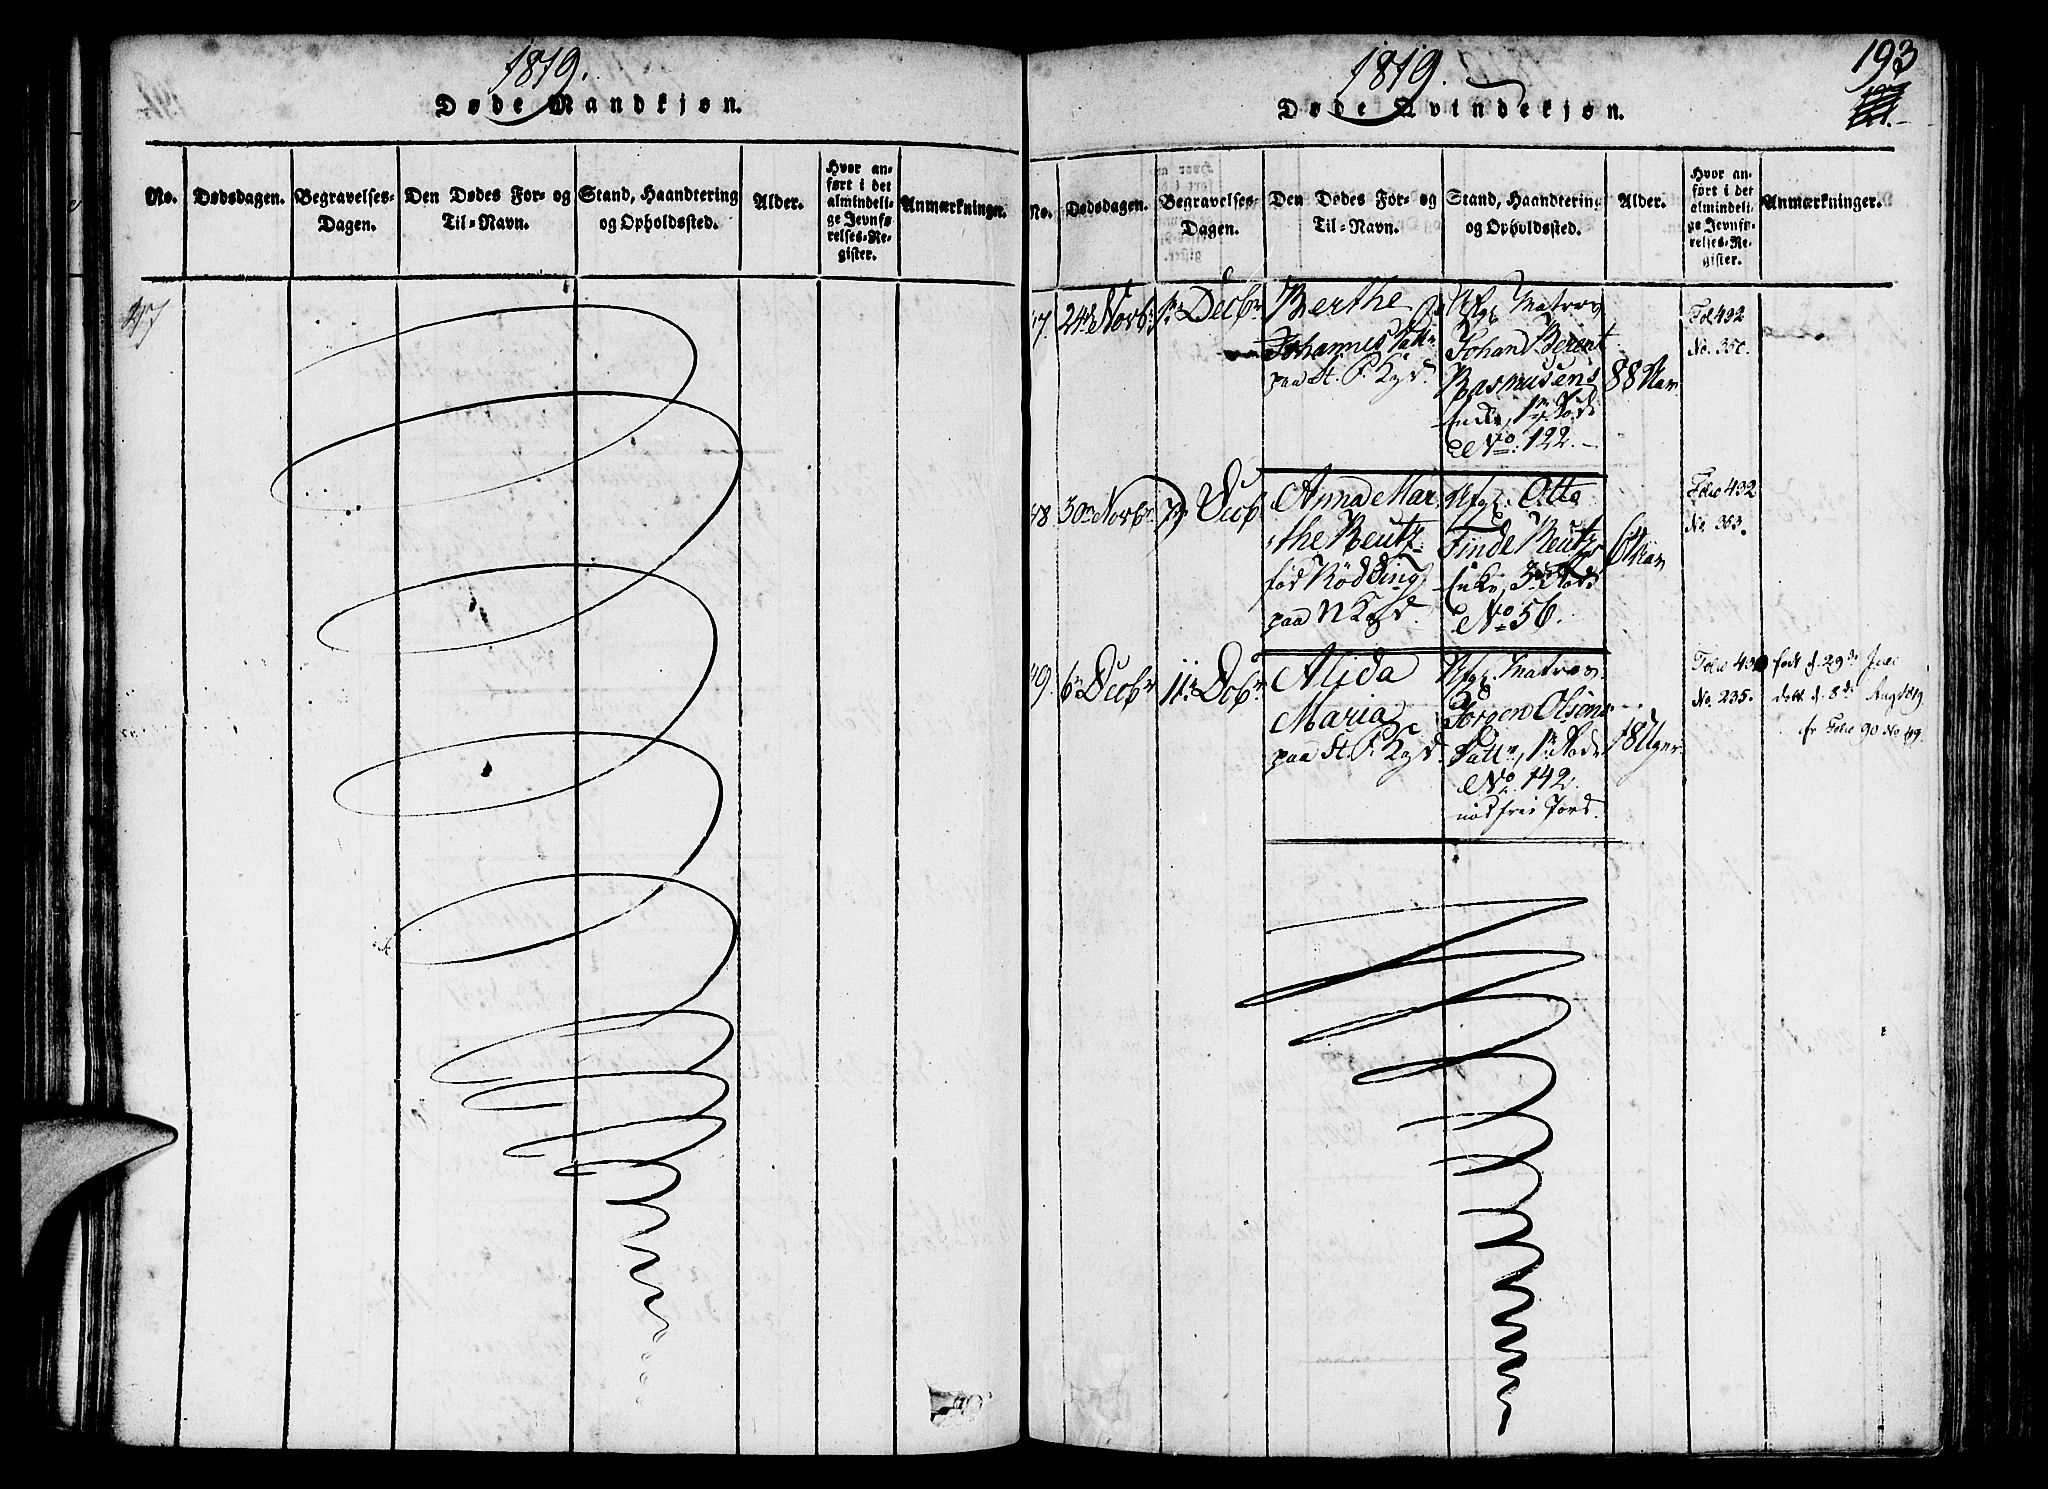 1819.
Døde Mandkjøn.
No.
Dødsdagen.
Begravelses-
Dagen.
Den Dødes For- og
Til-Navn.
Stand, Haandtering
og Opholdssted.
Alder.
Hvor an-
ført i det
almindeli-
ge Jevnfø-
relses-Re-
gister.
Anmærkninger.
1819.
193
Døde Qvindekjøn.
No.
Dødsdagen.
Begravelses-
Dagen.
Den Dødes For- og
Til-Navn.
Stand, Haandtering
og Opholdssted.
Alder.
Hvor an-
ført i det
almindeli-
ge Jevnfø-
relses-Re-
gister.
Anmærkninger.
47. 24de Novbr
1ste Decbr
Berthe
Johannes Datter
paa St. P. Kgd.
Afg. Matros
Johan Berent
Rasmusens
Enke, 1ste Rode
No. 122.
88 Aar
Fol 432
No. 350.
48 30te Novbr
7de Decbr
Anna Mar
the Reutz
fød Rødding
paa N Kgd.
Afg. Otto
Finde Reutz
Enke, 3die Rode
No 56.
61 Aar
Folio 432
No. 353.
49. 6te Decbr
11te Decbr
Alida
Maria
paa St. P. Kgd.
Afg. Matros
Jørgen Olsens
Datter, 1ste Rode
No. 142.
nød frie Jord.
18 Uger
No. 235.
født d. 29de
døbt d. 8de Aug 1819
cfr Folio 90 No 49.